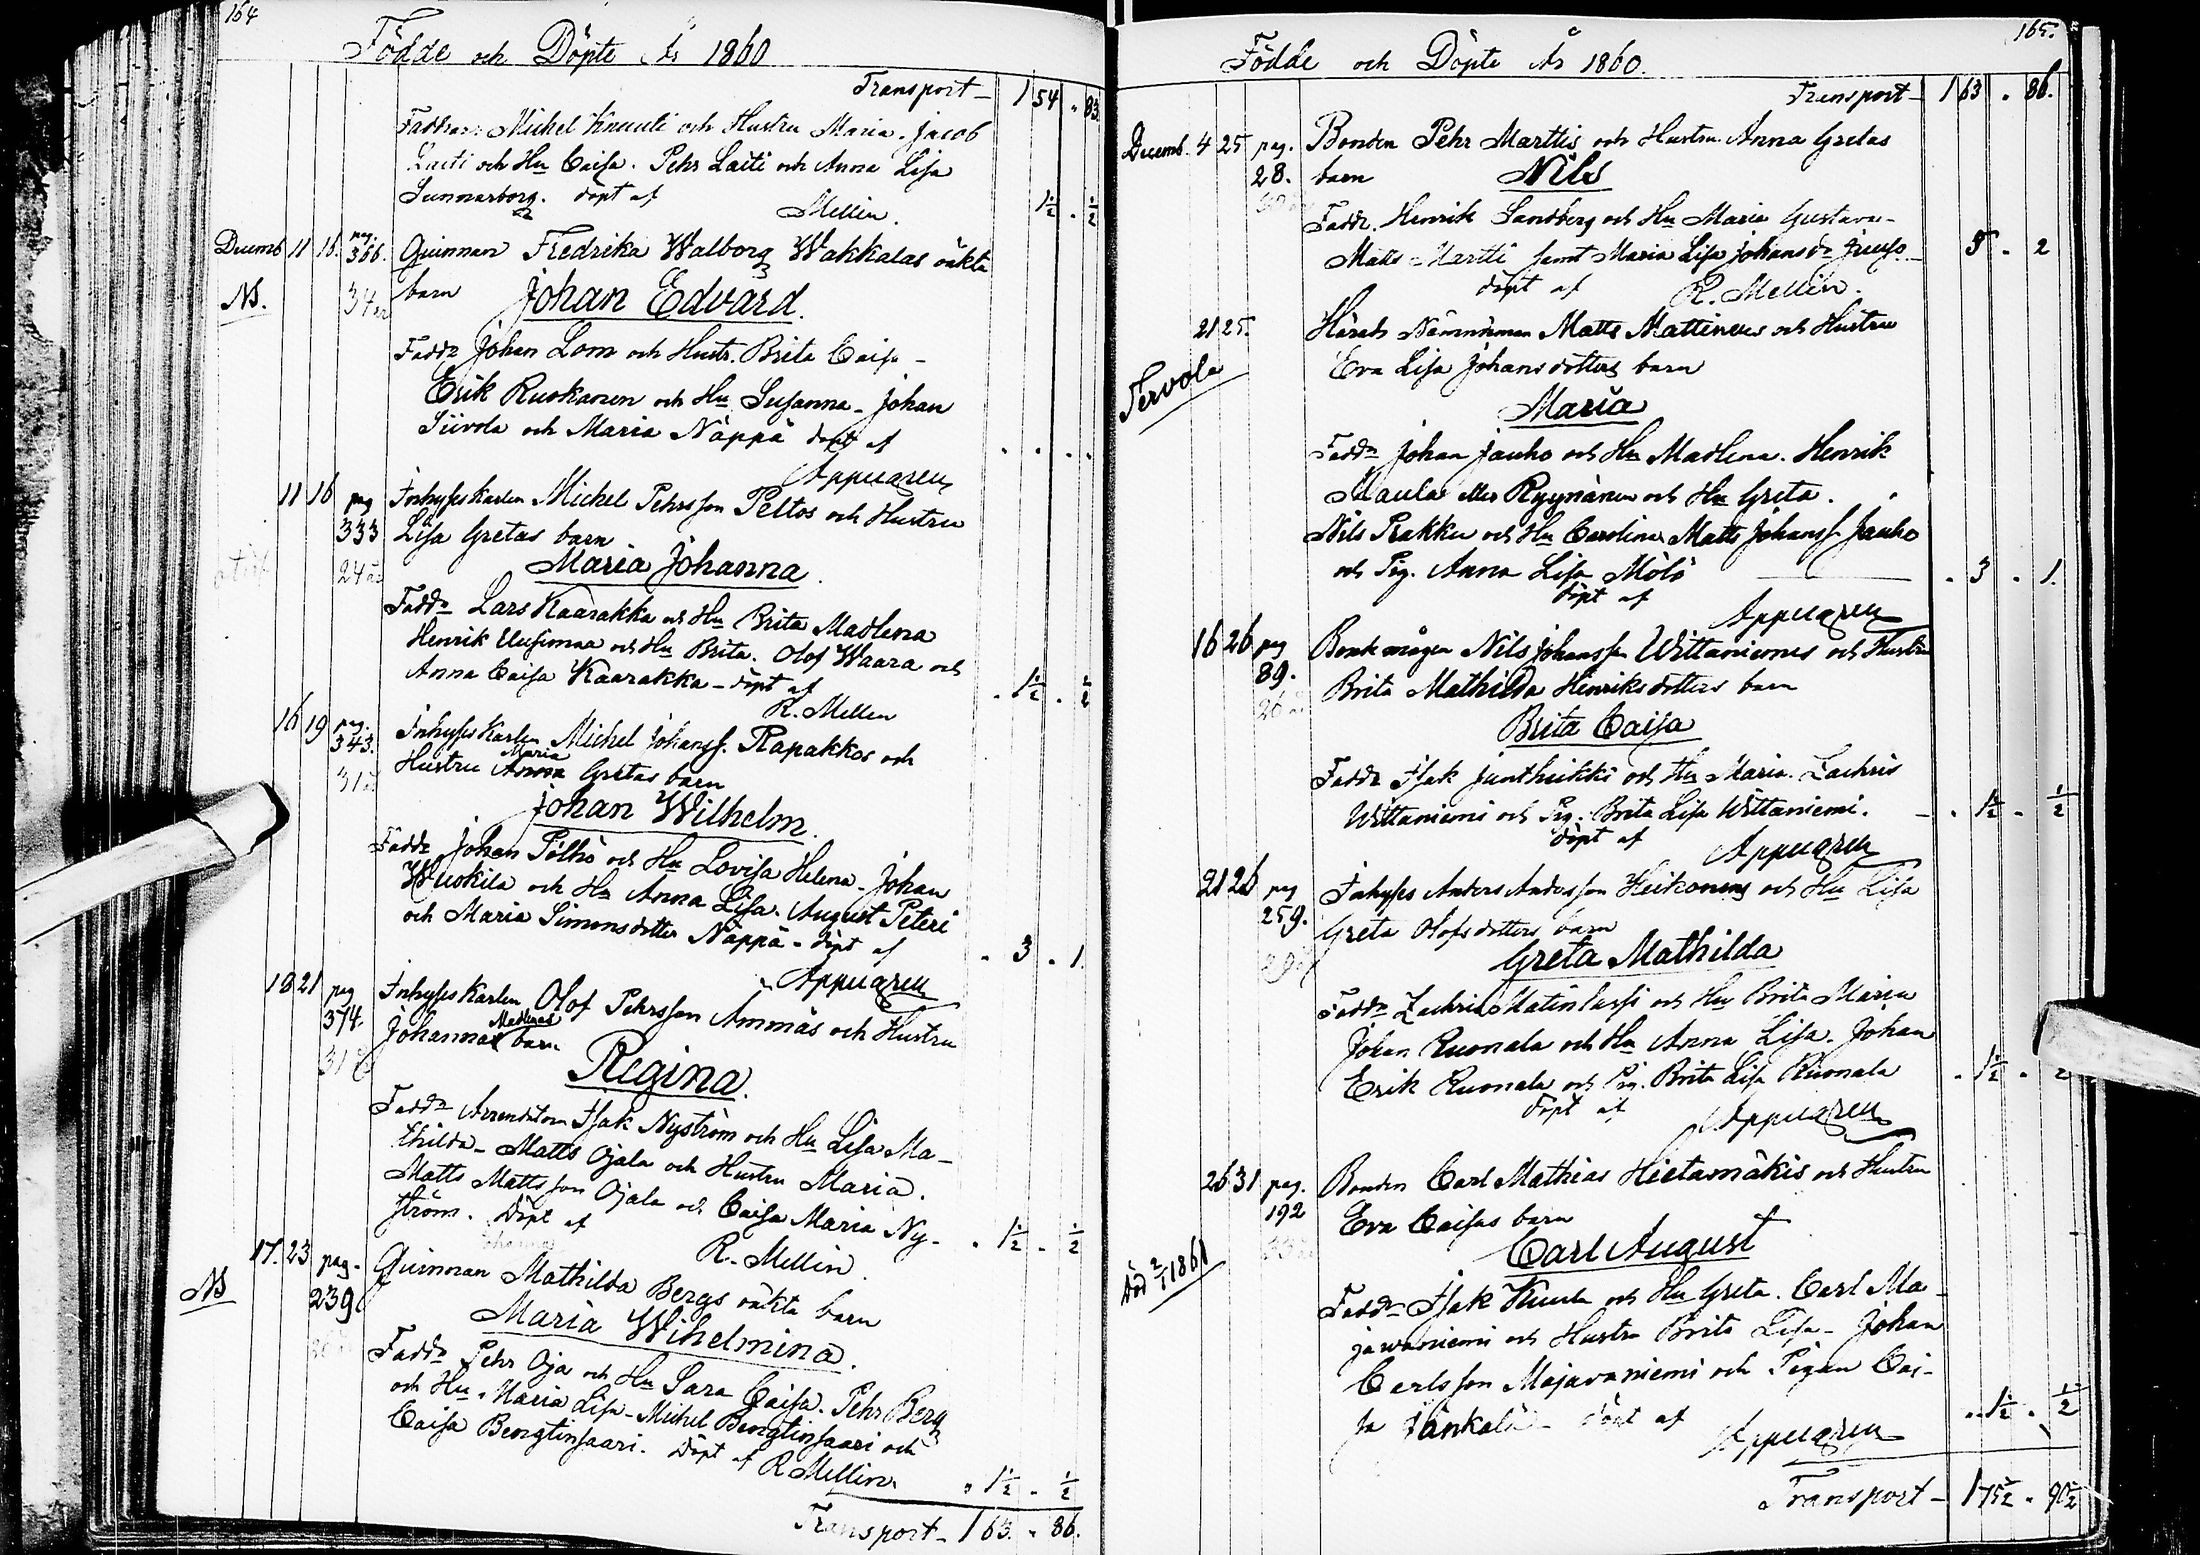 164
Födde och Döpte År 1860
Transport - 1 54 " 83.
Faddrar: Michel Knuuti och Hustru Maria. Jacob
Laiti och Hu Caisa. Pehr Laiti och Anna Lisa
Sunnarborg. döpt af
Mellin. 1½ . ½
Decemb 11 16. pag. 366. Quinnan Fredrika Walborg Wakkalas oäkta
NB. 34 år barn Johan Edvard.
Faddr Johan Lom och Hustr. Brita Caisa -
Erik Ruokanen och Hu Susanna - Johan
Siivola och Maria Näppä döpt af
Appelgren
11 16 pag 333 Inhyses Karlen Michel Pehrsson Peltos och Hustru
Lisa Gretas barn
24 år Maria Johanna.
Faddr Lars Kaarakka och Hu Brita Madlena
Henrik Uusimaa och Hu Brita. Olof Waara och
Anna Caisa Kaarakka - döpt af
R. Mellin . 1½ . ½
16 19 pag. 343. Inhyses Karlen Michel Johanss. Rapakkos och
Maria
Hustru Anna Gretas barn
31 år
Johan Wilhelm.
Faddr Johan Pölhö och Hu Lovisa Helena - Johan
Wuokila och Hu Anna Lisa. August Peteri
och Maria Simonsdotter Näppä - döpt af
Appelgren . 3 . 1.
18 21 pag 374. Inhyses Karlen Olof Pehrsson Ämmäs och Hustru
Madlenas
Johannas barn
31
Regina.
Faddr Arrendatorn Isak Nyström och Hu Lisa Ma-
thilda - Matts Ojala och Hustru Maria.
Matts Mattsson Ojala och Caisa Maria Ny-
ström. döpt af
R. Mellin . 1½ - ½
17. 23 pag. 239 Quinnan Mathilda Bergs oäkta barn
NB
Maria Wihelmina.
Faddr Pehr Oja och Hu Sara Caisa. Pehr Berg
och Hu. Maria Lisa - Michel Bengtinsaari och
Caisa Bengtinsaari. Döpt af R Mellin. " 1½ - ½
Transport - 163. " 86.
165.
Födde och Döpte År 1860.
Transport - 163 . 86.
Decemb. 4 25 pag. 28. Bonden Pehr Marttis och Hustru Anna Gretas
barn Nils
Faddr. Henrik Sandberg och Hu Maria Gustava -
Matts Martti samt Maria Lisa Johansdr Juuso - 5 - 2
döpt af R. Mellin.
21 25. Härads Nämndeman Matts Mattinens och Hustru
Eva Lisa Johansdotters barn
Tervola
Maria
Faddr Johan Jauho och Hu Madlena. Henrik
Maula eller Ryynänen och Hu Greta.
Nils Prakku och Hu Carolina Matts Johanss. Jauho
och Pig. Anna Lisa Mölö - . 3 . 1.
döpt af
Appelgren
16 26 pag 89. Bondemågen Nils Johansson Wittaniemis och Hustru
Brita Mathilda Henriksdotters barn
26 år
Brita Caisa
Faddr Isak Juntheikki och Hu Maria. Zachris
Wittaniemi och Pig. Brita Lisa Wittaniemi. - . 1½ - ½
döpt af Appelgren
21 26 pag 259. Inhyses Anders Andersson Heikonens och Hu Lisa
Greta Olofsdotters barn
Greta Mathilda
Faddr Zachris Matinlassi och Hu Brita Maria
Johan Ruonala och Hu Anna Lisa. Johan
Erik Ruonala och Pig. Brita Lisa Ruonala - 1½ - 2
döpt af
Appelgren
26 31 pag. 192 Bonden Carl Mathias Hietamäkis och Hustru
Eva Caisas barn
Död 2/1 1861 Carl August
Faddr Isak Kuula och Hu Greta. Carl Ma-
javaniemi och Hustru Brita Lisa - Johan
Carlsson Majavaniemi och Pigan Cai-
sa Jänkälä - döpt af .. 1½ . ½
Appelgren
Transport - 175½ " 90½